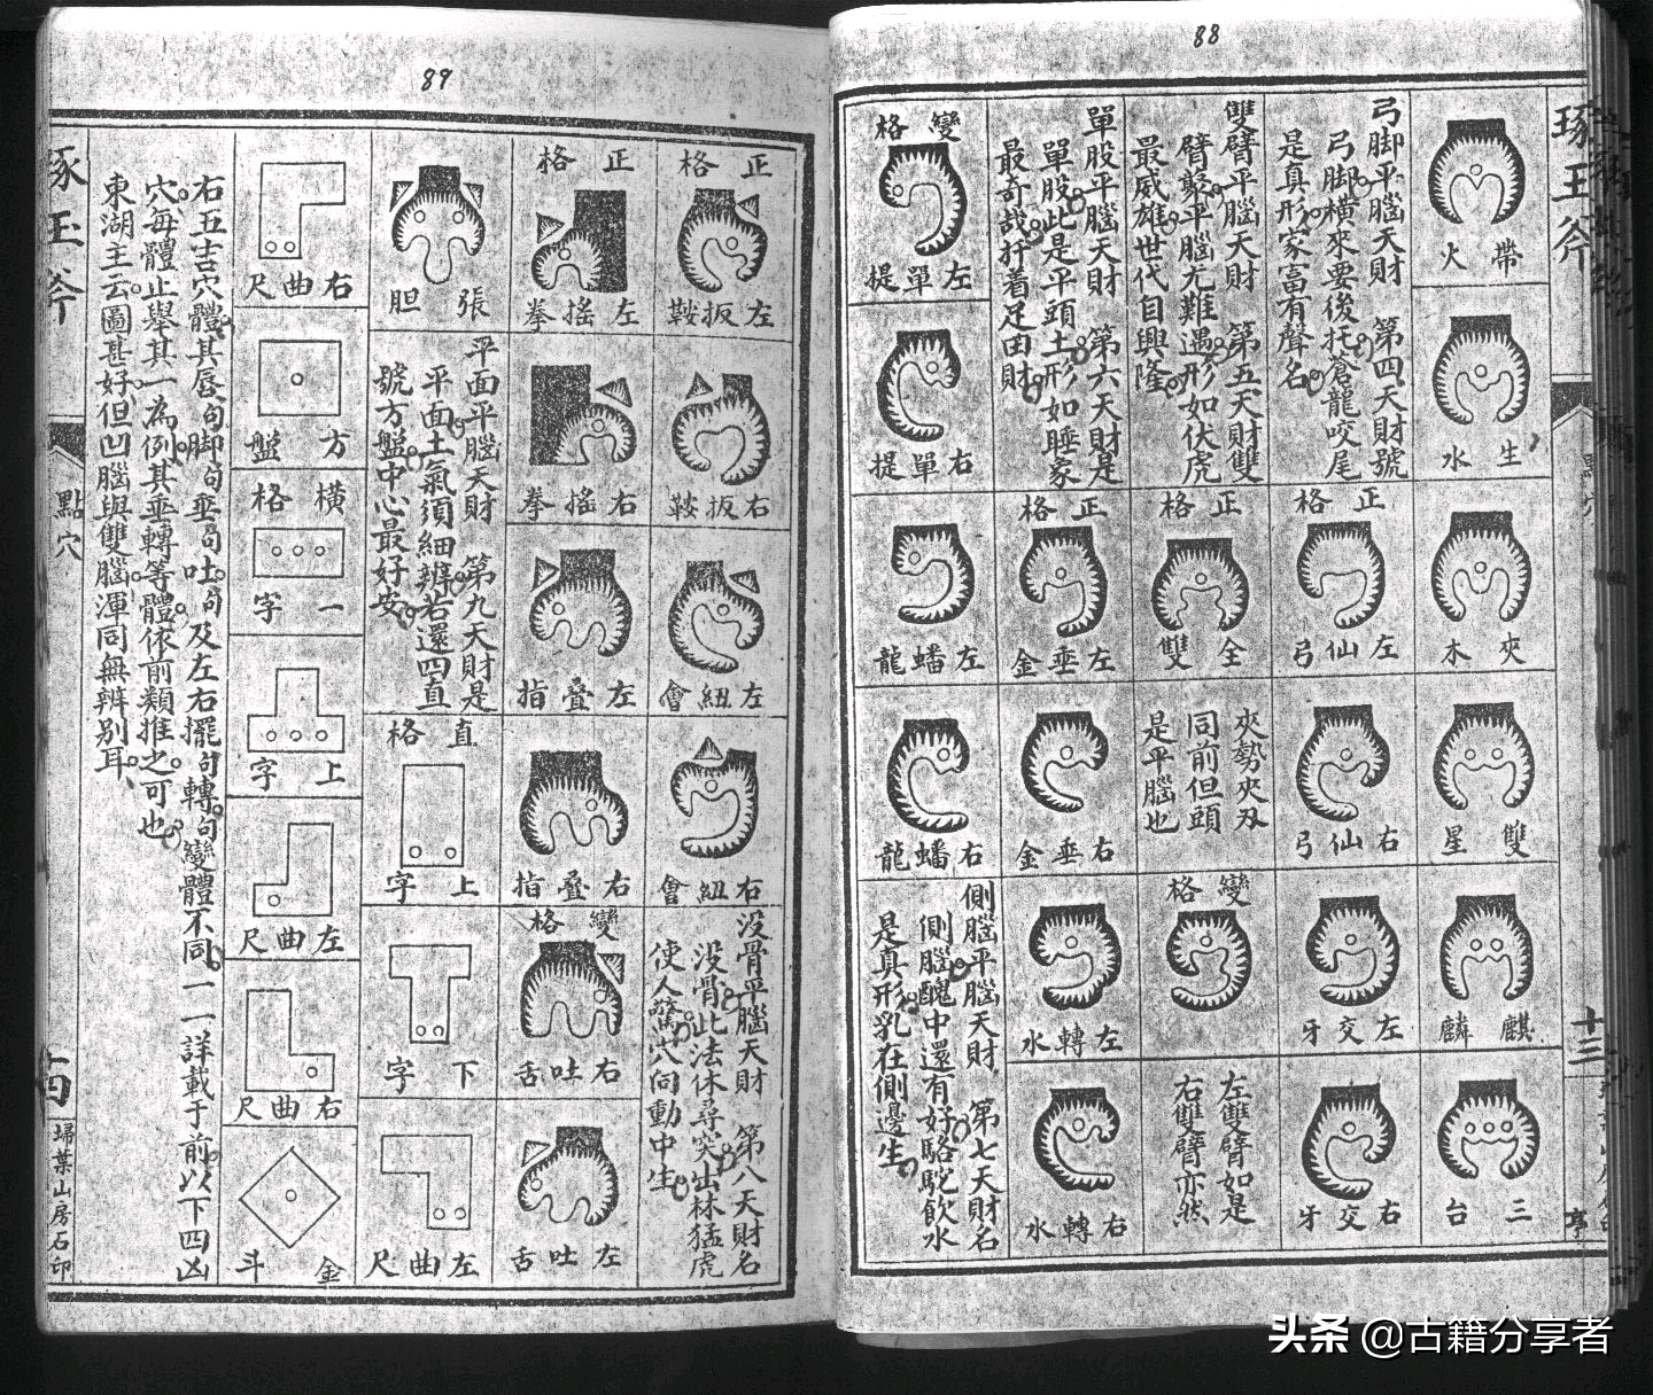 88
琢玉斧
點穴
十三
帶火
生水
夾木
雙星
麒麟
三台
弓脚平腦天財 第四天財號
弓脚橫來要後托蒼龍咬尾
是真形家富有聲名
正格
左仙弓
右仙弓
左交牙
右交牙
雙臂平腦天財 第五天財雙
臂聚平腦尤難遇形如伏虎
最威雄世代自興隆
正格
全雙
夾勢夾刃
同前但頭
是平腦也
變格
左雙臂如是
右雙臂亦然
單股平腦天財 第六天財是
單股此是平頭土形如睡象
最奇哉扦着足田財
正格
左垂金
右垂金
左轉水
右轉水
變格
左單提
右單提
左蟠龍
右蟠龍
側腦平腦天財 第七天財名
側腦醜中還有好駱駝飲水
是真形乳在側邊生
89
正格
左扳鞍
右扳鞍
左紐會
右紐會
没骨平腦天財 第八天財名
没骨此法休尋突出林猛虎
使人驚穴向動中生
正格
左搖拳
右搖拳
左疊指
右疊指
變格
右吐舌
左吐舌
張胆
平面平腦天財 第九天財是
平面土氣須細辨若還四直
號方盤中心最好安
直格
上字
下字
左曲尺
右曲尺
方盤
橫格
一字
上字
左曲尺
右曲尺
金斗
右五吉穴體其唇句脚句垂句吐句及左右擺句轉句變體不同一一詳載于前以下四凶
穴每體止舉其一為例其垂轉等體依前類推之可也
東湖主云圖甚好但凹腦與雙腦渾同無辨別耳
琢玉斧
點穴
十四
埽葉山房石印
头条 @古籍分享者